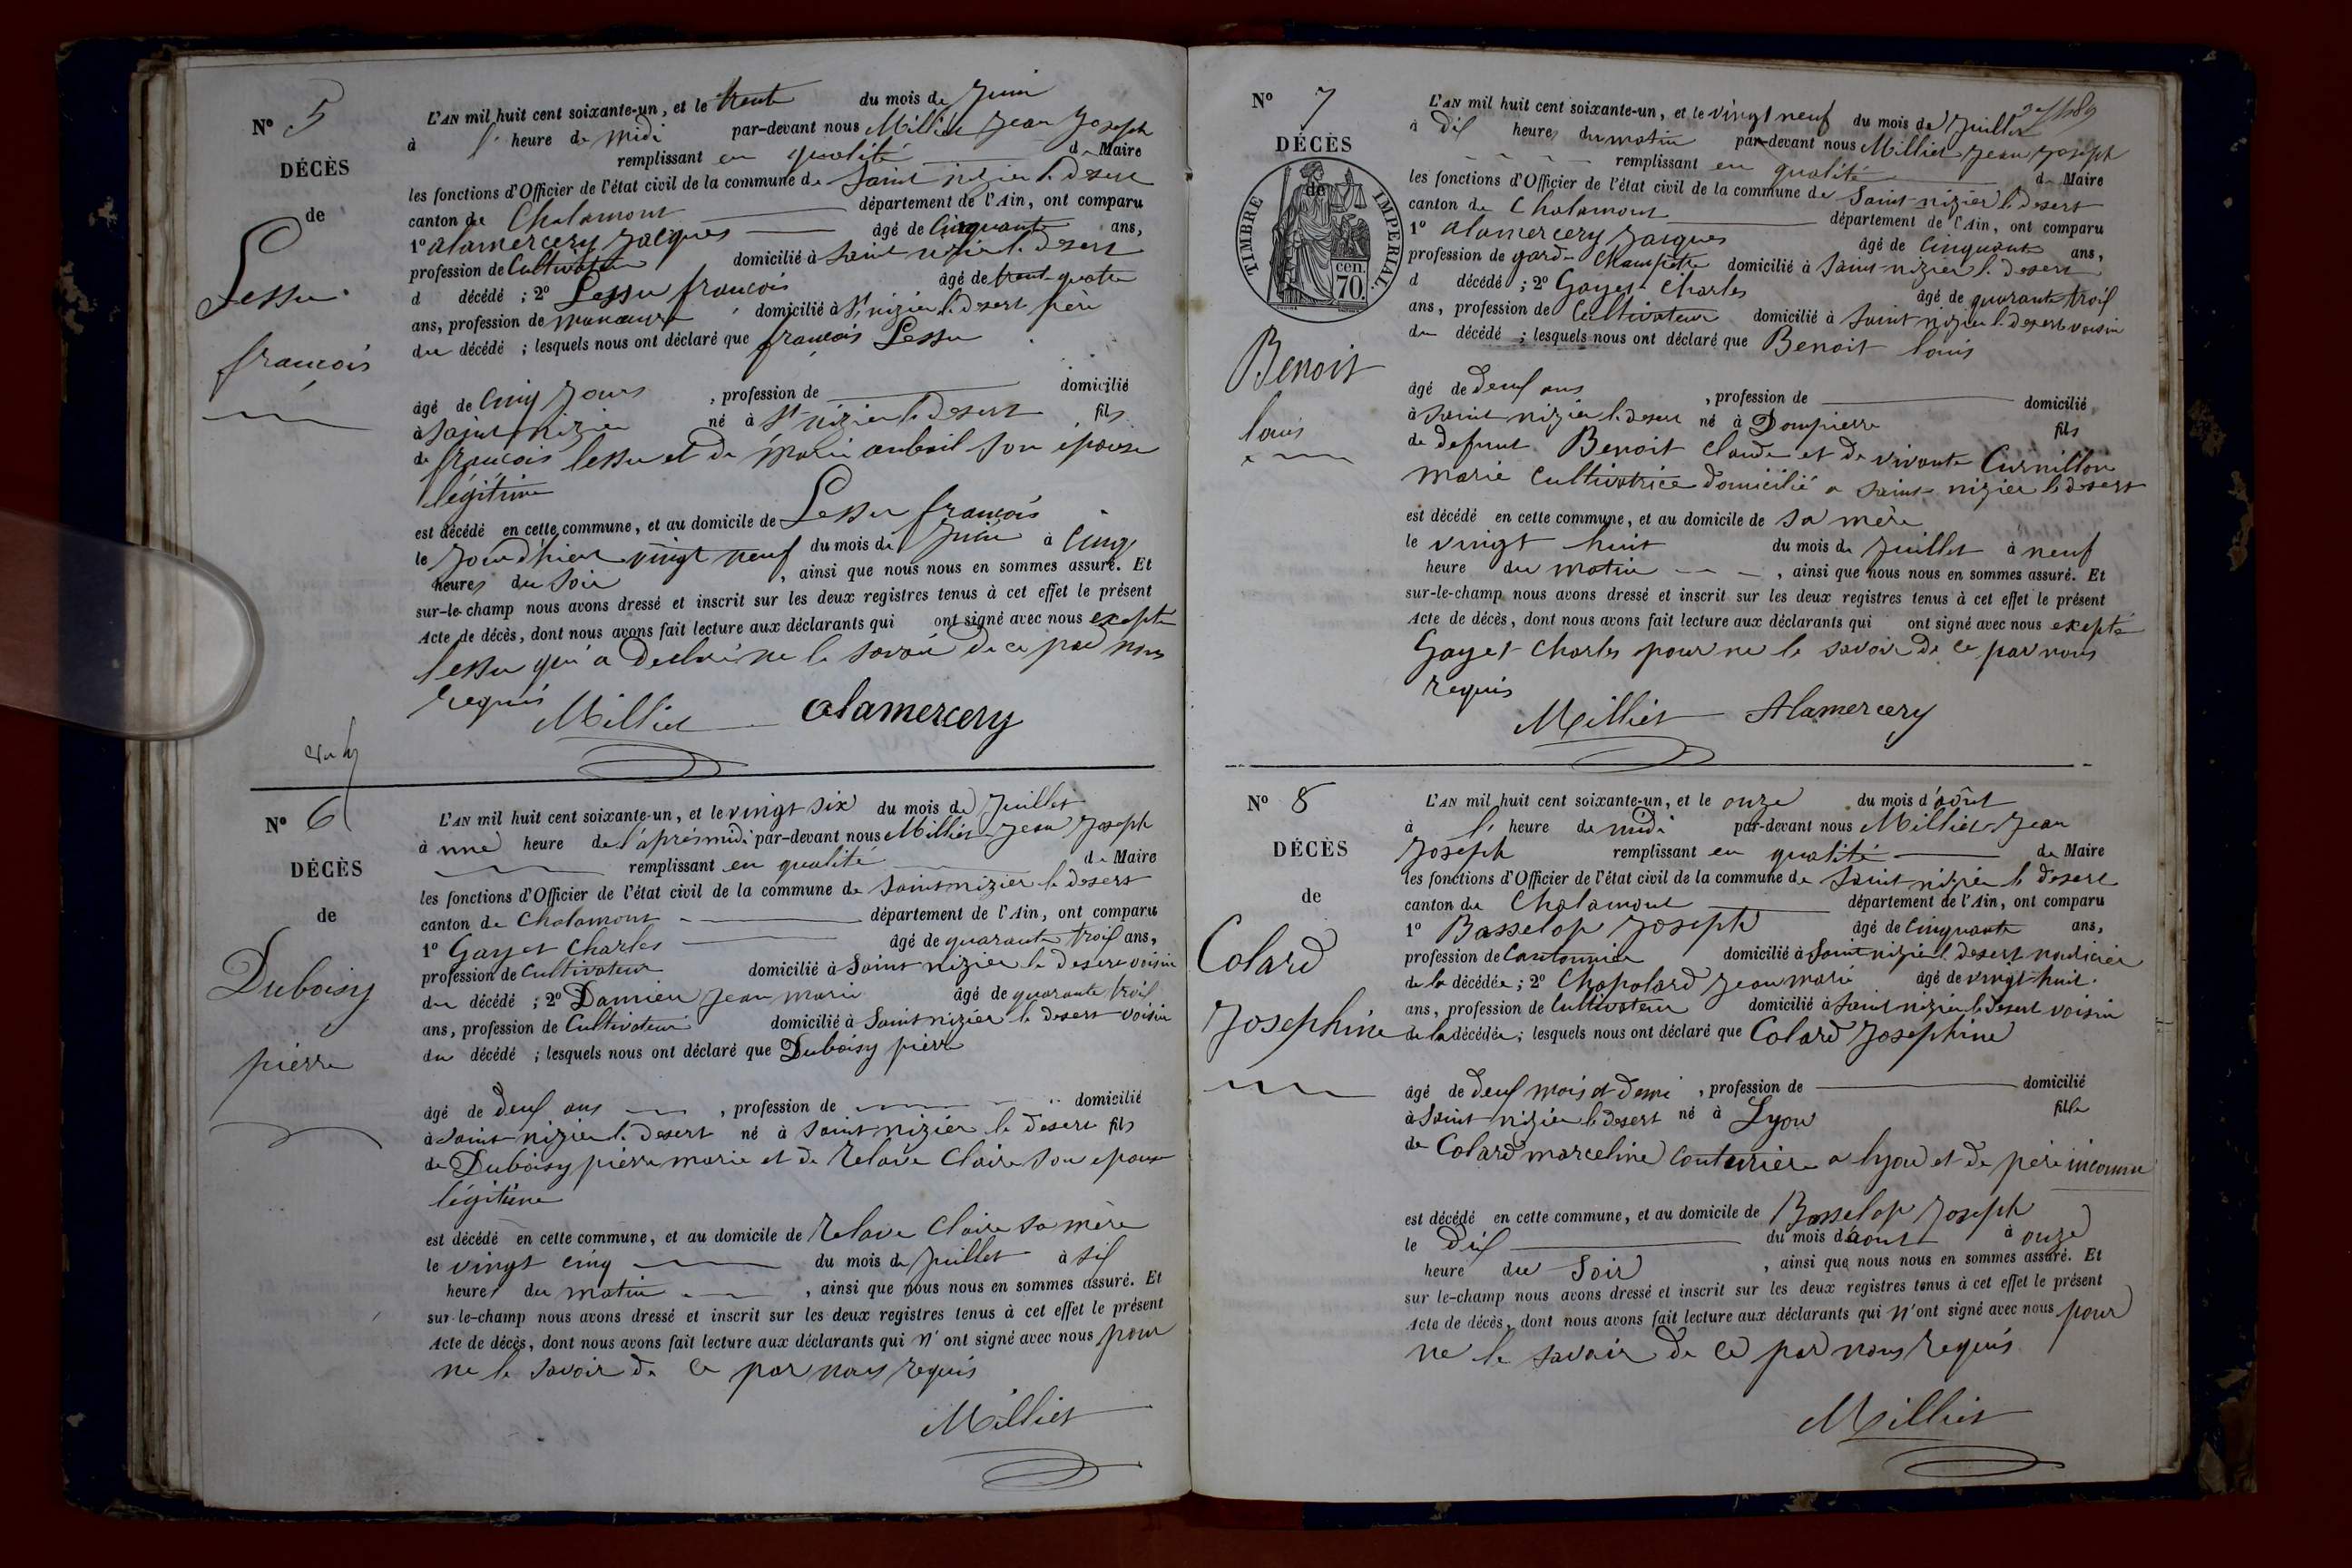 N° 5
DÉCÈS
de
Lessu
françois
L'AN mil huit cent soixante-un, et le trente du mois de Juin
à l' heure de midi par-devant nous Milliet Jean Joseph
remplissant en qualité de Maire
les fonctions d'Officier de l'état civil de la commune de Saint nizier le desert
canton de Chalamont département de l'Ain, ont comparu
1° alamercery Jacques âgé de Cinquante ans,
profession de Cultivateur domicilié à Saint nizier le desert
d décédé ; 2° Lessu françois âgé de trente-quatre
ans, profession de manœuvre domicilié à St nizier le desert père
du décédé ; lesquels nous ont déclaré que françois Lessu
âgé de Cinq Jours , profession de domicilié
à Saint nizier né à St nizier le desert fils
de françois lessu et de marie son épouse
légitime
est décédé en cette commune, et au domicile de Lessu françois
le Jourdhier vingt neuf du mois de Juin à Cinq
heures du Soir , ainsi que nous nous en sommes assuré. Et
sur-le-champ nous avons dressé et inscrit sur les deux registres tenus à cet effet le présent
Acte de décès, dont nous avons fait lecture aux déclarants qui ont signé avec nous excepté
lessu qui a declaré ne le savoir de ce par nous
requis
Milliet alamercery
N° 6
DÉCÈS
de
Duboisy
pierre
L'AN mil huit cent soixante-un, et le vingt six du mois de Juillet
à une heure de l'aprésmidi par-devant nous Milliet Jean Joseph
remplissant en qualité de Maire
les fonctions d'Officier de l'état civil de la commune de Saint nizier le desert
canton de Chalamont département de l'Ain, ont comparu
1° Gayet Charles âgé de quarante trois ans,
profession de Cultivateur domicilié à Saint nizier le desert voisin
du décédé ; 2° Damien Jean marie âgé de quarante trois
ans, profession de Cultivateur domicilié à Saint nizier le desert voisin
du décédé ; lesquels nous ont déclaré que Duboisy pierre
âgé de deux ans , profession de domicilié
à Saint nizier le desert né à Saint nizier le desert fils
de Duboisy pierre marie et de Relave Claire son epouse
légitime
est décédé en cette commune, et au domicile de Relave Claire sa mère
le vingt cinq du mois de Juillet à six
heures du matin , ainsi que nous nous en sommes assuré. Et
sur-le-champ nous avons dressé et inscrit sur les deux registres tenus à cet effet le présent
Acte de décès, dont nous avons fait lecture aux déclarants qui n' ont signé avec nous pour
ne le savoir de ce par nous requis
Milliet
N° 7
DÉCÈS
de
TIMBRE IMPERIAL
cen.
70.
Benoit
louis
L'AN mil huit cent soixante-un, et le vingt neuf du mois de Juillet
à dix heures du matin par-devant nous Milliet Jean Joseph
remplissant en qualité de Maire
les fonctions d'Officier de l'état civil de la commune de Saint nizier le desert
canton de Chalamont département de l'Ain, ont comparu
1° alamercery Jacques âgé de Cinquante ans,
profession de garde Champêtre domicilié à Saint nizier le desert
d décédé ; 2° Gayet Charles âgé de quarante trois
ans, profession de Cultivateur domicilié à Saint nizier le desert voisin
du décédé ; lesquels nous ont déclaré que Benoit louis
âgé de deux ans , profession de domicilié
à Saint nizier le desert né à Dompierre fils
de defunt Benoit Claude et de vivante Curnillon
marie Cultivatrice domicilié a saint nizier le desert
est décédé en cette commune, et au domicile de sa mère
le vingt huit du mois de Juillet à neuf
heure du matin , ainsi que nous nous en sommes assuré. Et
sur-le-champ nous avons dressé et inscrit sur les deux registres tenus à cet effet le présent
Acte de décès, dont nous avons fait lecture aux déclarants qui ont signé avec nous excepté
Gayet Charles pour ne le savoir de ce par nous
requis
Milliet Alamercery
N° 8
DÉCÈS
de
Colard
Josephine
L'AN mil huit cent soixante-un, et le onze du mois d'août
à l' heure de midi par-devant nous Milliet Jean
Joseph remplissant en qualité de Maire
les fonctions d'Officier de l'état civil de la commune de Saint nizier le desert
canton de Chalamont département de l'Ain, ont comparu
1° Basselop Joseph âgé de Cinquante ans,
profession de Cantonnier domicilié à Saint nizier le desert nouricier
de la décédée ; 2° Chapolard Jean marie âgé de vingt-huit
ans, profession de Cultivateur domicilié à Saint nizier le desert voisin
de la décédée ; lesquels nous ont déclaré que Colard Josephine
âgé de deux mois et demi , profession de domicilié
à Saint nizier le desert né à Lyon fille
de Colard marceline Couturière a lyon et de père inconnu
est décédé en cette commune, et au domicile de Basselop Joseph
le dix du mois d'aout à onze
heure du Soir , ainsi que nous nous en sommes assuré. Et
sur le-champ nous avons dressé et inscrit sur les deux registres tenus à cet effet le présent
Acte de décès, dont nous avons fait lecture aux déclarants qui n'ont signé avec nous pour
ne le savoir de ce par nous requis
Milliet